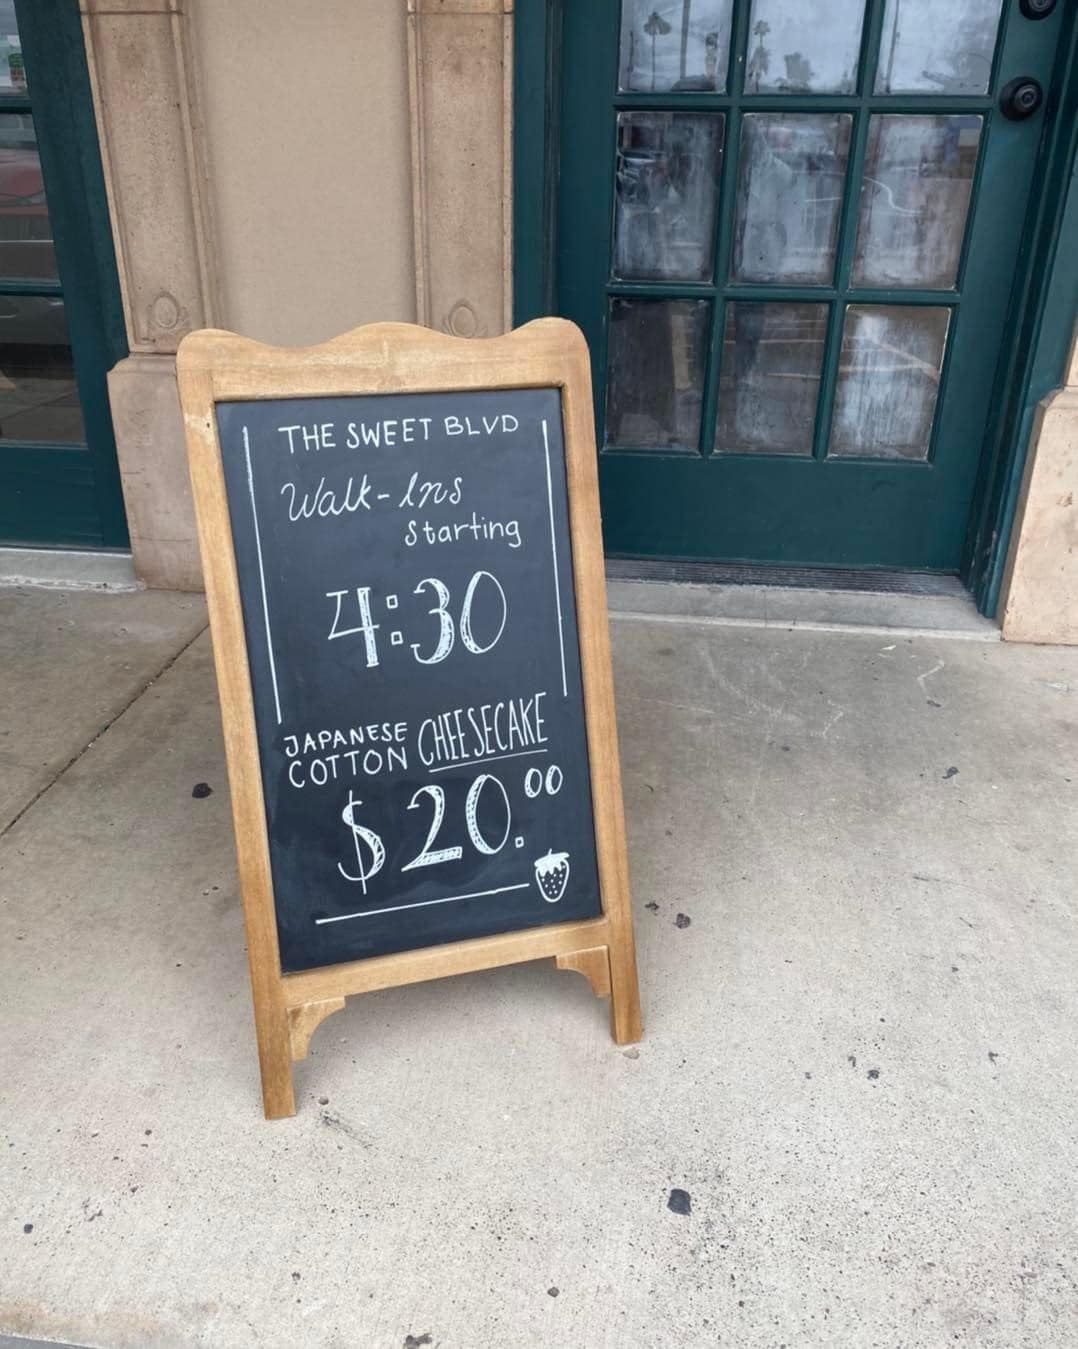 THE SWEET BLVD
Walk-Ins
Starting
4:30
JAPANESE
COTTON CHEESECAKE
$20.00